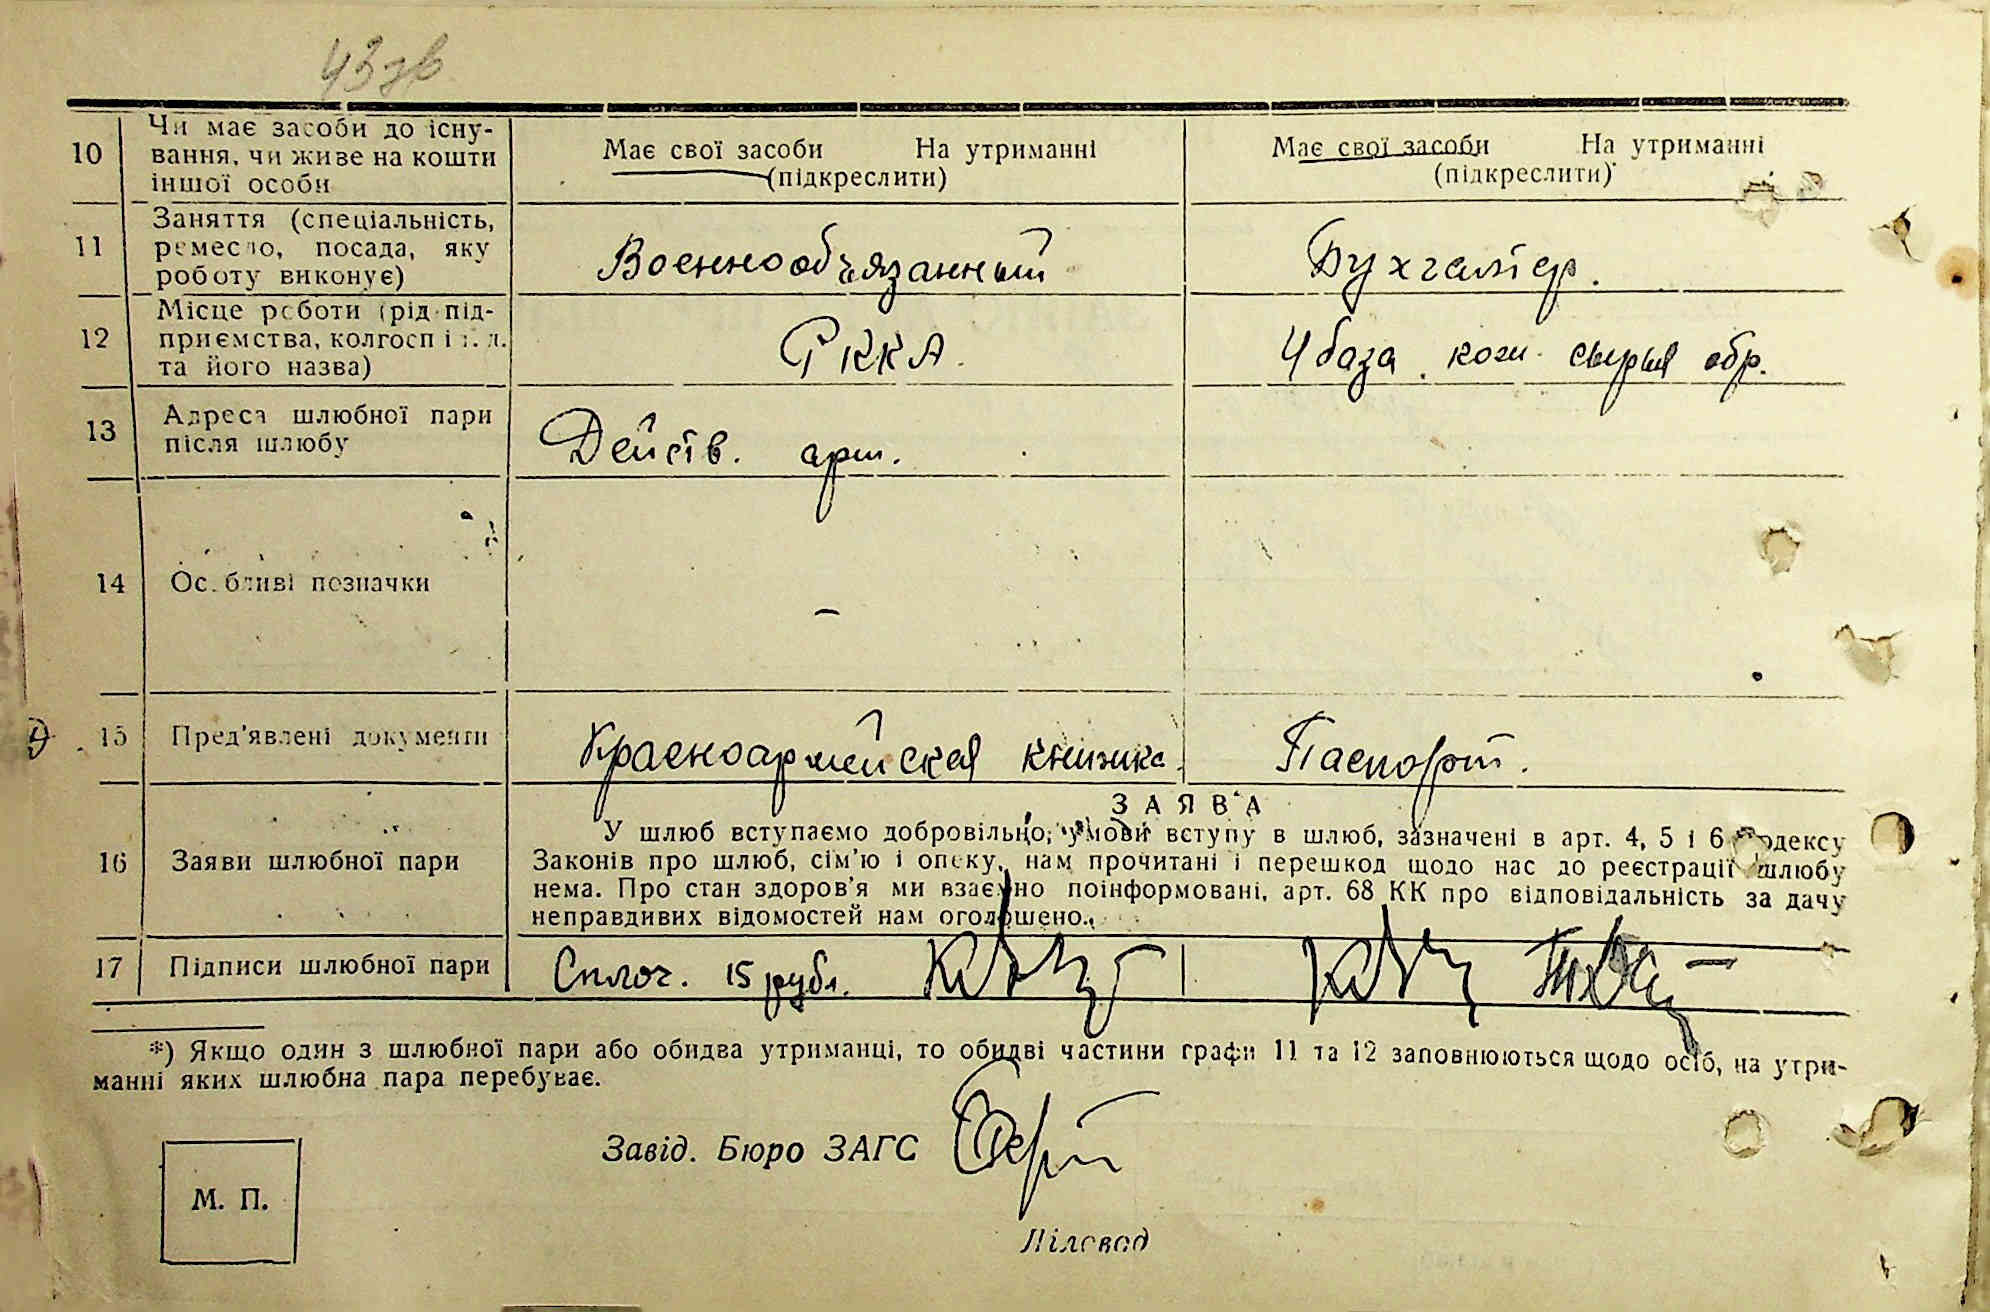 43зв
10 Чи має засоби до існу-
вання, чи живе на кошти
іншої особи
Має свої засоби На утриманні
(підкреслити)
Має свої засоби На утриманні
(підкреслити)
11 Заняття (спеціальність,
ремесло, посада, яку
роботу виконує)
Военнообъязанный
Бухгалтер.
12 Місце роботи (рід під-
приємства, колгосп і т. д.
та його назва)
РККА.
4 база кож. сырья обр.
13 Адреса шлюбної пари
після шлюбу
Действ. арм.
14 Особливі позначки
–
15 Пред'явлені документи
Красноармейская книжка.
Паспорт.
16 Заяви шлюбної пари
ЗАЯВА
У шлюб вступаємо добровільно, умови вступу в шлюб, зазначені в арт. 4, 5 і 6 Кодексу
Законів про шлюб, сім'ю і опеку, нам прочитані і перешкод щодо нас до реєстрації шлюбу
нема. Про стан здоров'я ми взаємно поінформовані, арт. 68 КК про відповідальність за дачу
неправдивих відомостей нам оголошено.
17 Підписи шлюбної пари
Сплоч. 15 рубл.
*) Якщо один з шлюбної пари або обидва утриманці, то обидві частини графи 11 та 12 заповнюються щодо осіб, на утри-
манні яких шлюбна пара перебуває.
Завід. Бюро ЗАГС
М. П.
Діловод